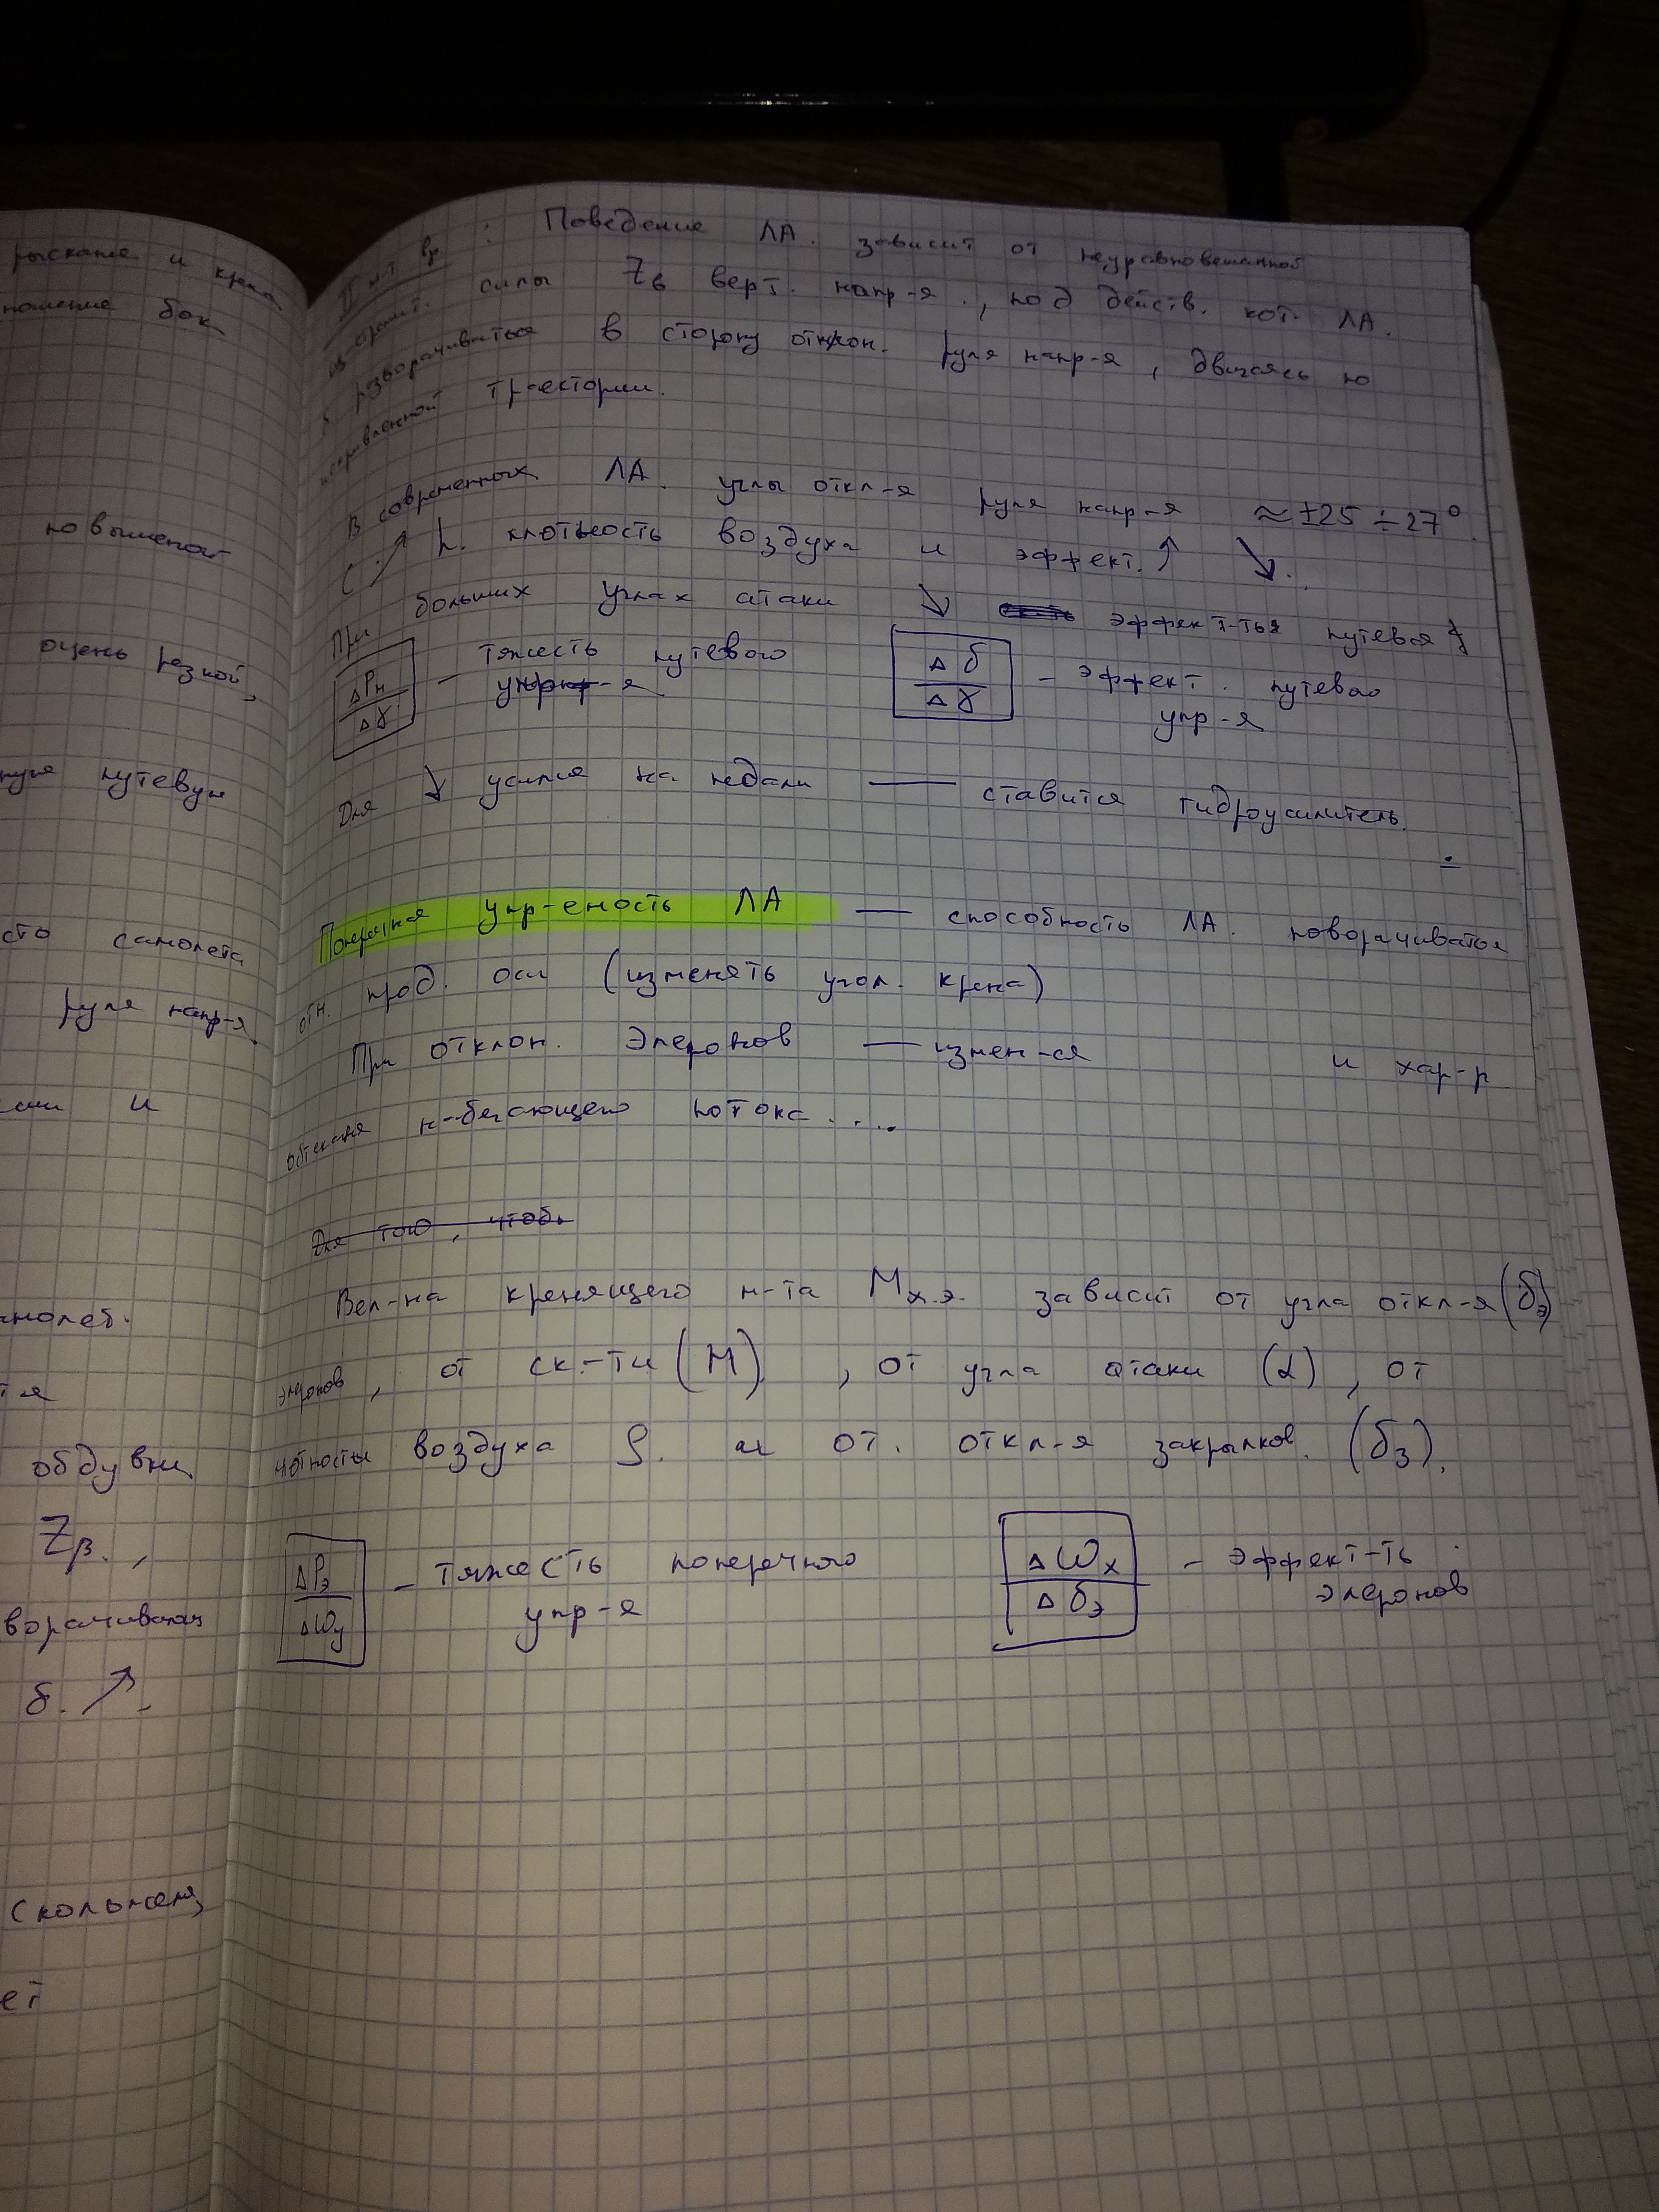 рыскание и крена
ношение бок
повышеной
очень резкой,
путевую
сто самолета
руля напр-я
и
обдувки
Zβ.,
ворачиваться
δ. ↗.
скольжения
ет
II м-т вр : Поведение ЛА. зависит от неуравновешенной
силы Zв верт. напр-я., под действ. кот. ЛА.
разворачиваться в сторону отклон. руля напр-я, двигаясь по
искривленной траектории.
В современных ЛА. углы откл-я руля напр-я ≈ ±25 ÷ 27°
С ↗ h. плотность воздуха и эффект. ↑ ↘.
При больших углах атаки ↘ эффект-тья путевая
ΔPн / Δγ - тяжесть путевого упр-я
Δδ / Δγ - эффект. путевого упр-я
Для ↓ усилия на педали — ставится гидроусилитель.
Поперечная упр-емость ЛА — способность ЛА. поворачиваться
отн. прод. оси (изменять угол. крена)
При отклон. Элеронов — измен-ся и хар-р
обтекания набегающего потока....
Для того, чтобы
Вел-на кренящего м-та Mх.э. зависит от угла откл-я (δэ)
элеронов, от ск.-ти (М), от угла атаки (α), от
плотности воздуха ρ. и от. откл-я закрылков. (δз).
ΔPэ / Δωy - тяжесть поперечного упр-я
Δωx / Δδэ - эффект-ть элеронов